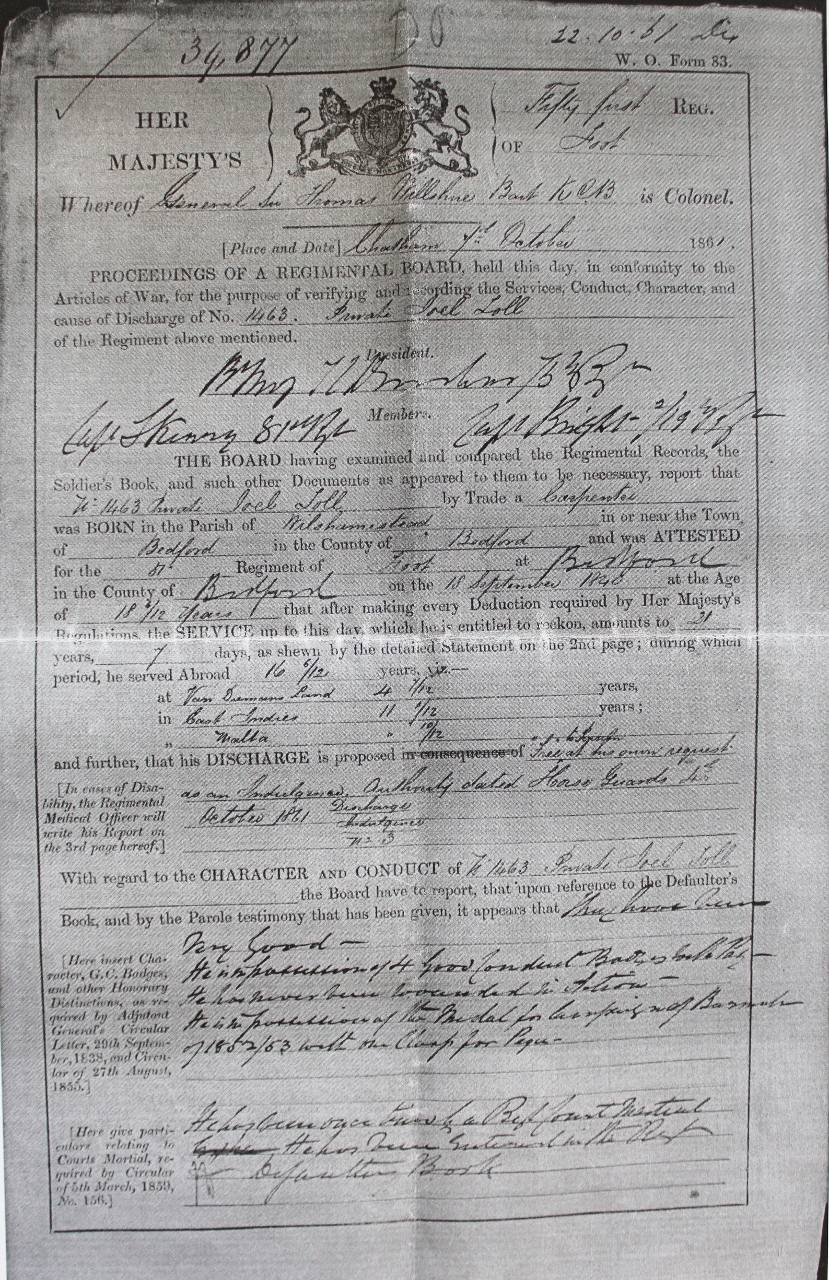 34,877
22.10.61
W. O. Form 83.
HER
MAJESTY'S
Fifty first REG.
OF Foot
Whereof General Sir Thomas Willshire Bart K C B is Colonel.
[Place and Date] Chatham 7th October 1861.
PROCEEDINGS OF A REGIMENTAL BOARD, held this day, in conformity to the
Articles of War, for the purpose of verifying and recording the Services, Conduct, Character, and
cause of Discharge of No. 1463. Private Joel Loll
of the Regiment above mentioned.
President.
Members.
Capt Kenny 81st Rgt Capt Bright 2/19th Rgt
THE BOARD having examined and compared the Regimental Records, the
Soldier's Book, and such other Documents as appeared to them to be necessary, report that
No 1463 Private Joel Loll by Trade a Carpenter
was BORN in the Parish of Wilshamstead in or near the Town
of Bedford in the County of Bedford and was ATTESTED
for the 51st Regiment of Foot at Bedford
in the County of Bedford on the 18 September 1840 at the Age
of 18 /12 Years that after making every Deduction required by Her Majesty's
Regulations, the SERVICE up to this day, which he is entitled to reckon, amounts to 21
years, 7 days, as shewn by the detailed Statement on the 2nd page; during which
period, he served Abroad 16 /12 years, viz.—
at Van Diemans Land 4 /12 years,
in East Indies 11 /12 years;
" Malta " 10/12
and further, that his DISCHARGE is proposed in consequence of Free at his own request
[In cases of Disa-
bility, the Regimental
Medical Officer will
write his Report on
the 3rd page hereof.]
as an Indulgence, Authority dated Horse Guards 4th
October 1861 Discharge
Indulgence
No 3
With regard to the CHARACTER AND CONDUCT of No 1463 Private Joel Loll
the Board have to report, that upon reference to the Defaulter's
Book, and by the Parole testimony that has been given, it appears that they have been
[Here insert Cha-
racter, G.C. Badges,
and other Honorary
Distinctions, as re-
quired by Adjutant
General's Circular
Letter, 29th Septem-
ber, 1838, and Circu-
lar of 27th August,
1855.]
Very Good —
He is in possession of 4 Good Conduct Badges
He has never been wounded in Action —
He is in possession of the Medal for Campaign of Burmah
of 1852/53 with one Clasp for Pegu —
[Here give parti-
culars relating to
Courts Martial, re-
quired by Circular
of 5th March, 1859,
No. 156.]
He has been once tried by a Regt Court Martial
He has been entered in the Regt
Defaulters Book